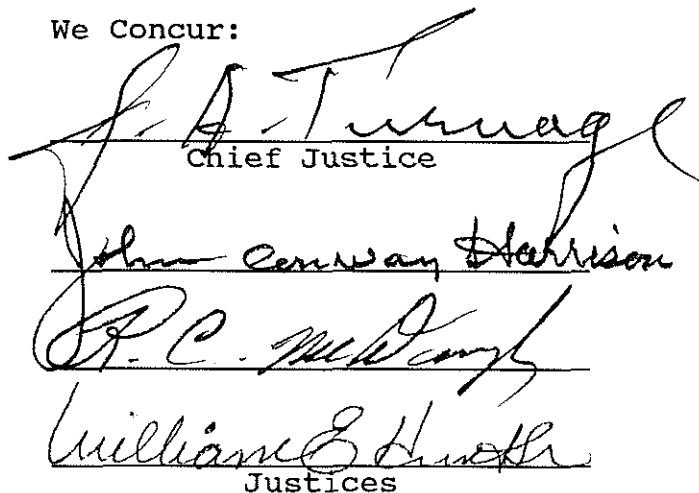 We Concur:
J. A. Turnage
Chief Justice
John Conway Harrison
R. C. McDonough
William E. Hunt Sr
Justices